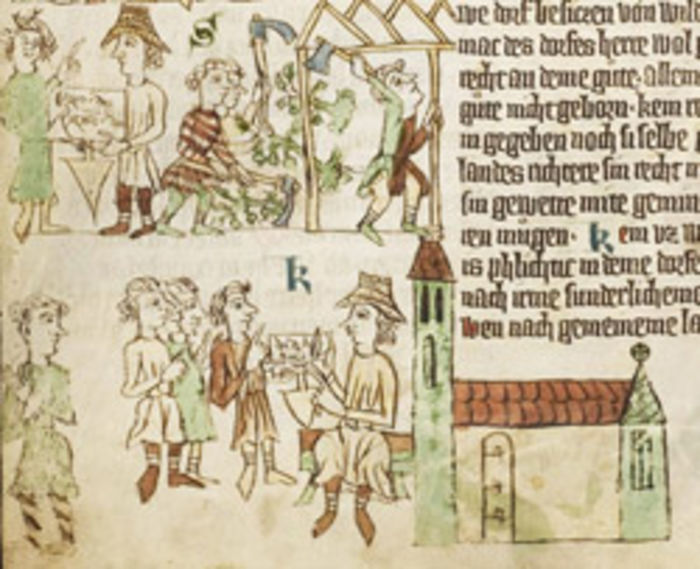 S
k
we dorf besiczen von wild
mac des dorfes herre wol
recht an deme gute· allein
gute nicht geborn· kein
in gegeben noch si selbe
landes richtere sin recht
sin gewette mite gemin
ren mugen· kein uz w
is phlichtic in deme dorfe
nach irme sunderlicheme
wen nach gemeineme la